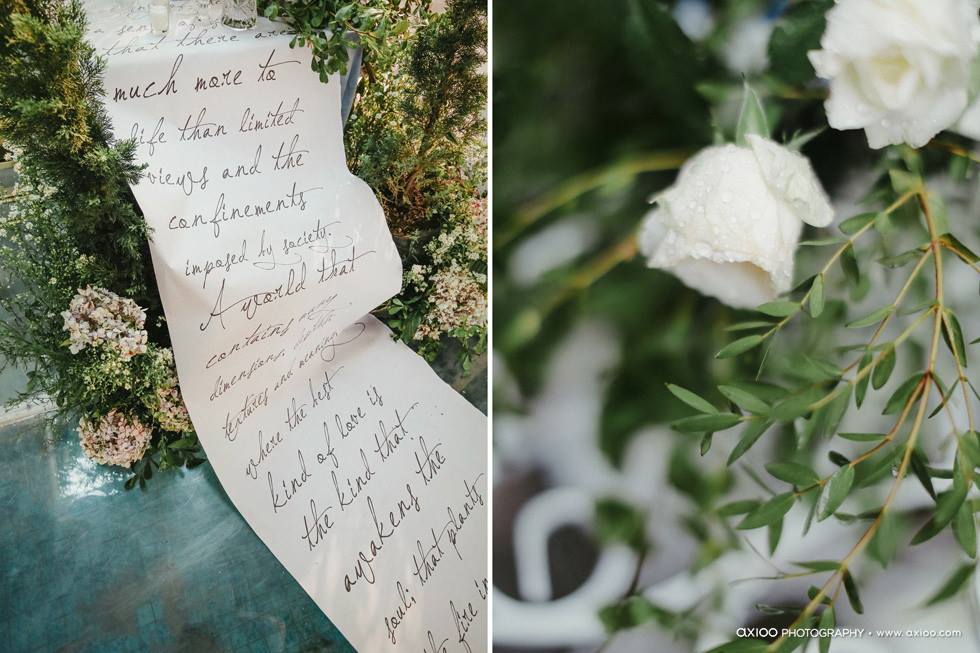 that there are
much more to
life than limited
views and the
confinements
imposed by society.
A world that
contains many
dimensions, depths
textures and meaning
where the best
kind of love is
the kind that
awakens the
soul; that plants
the fire in
axioo PHOTOGRAPHY • www.axioo.com